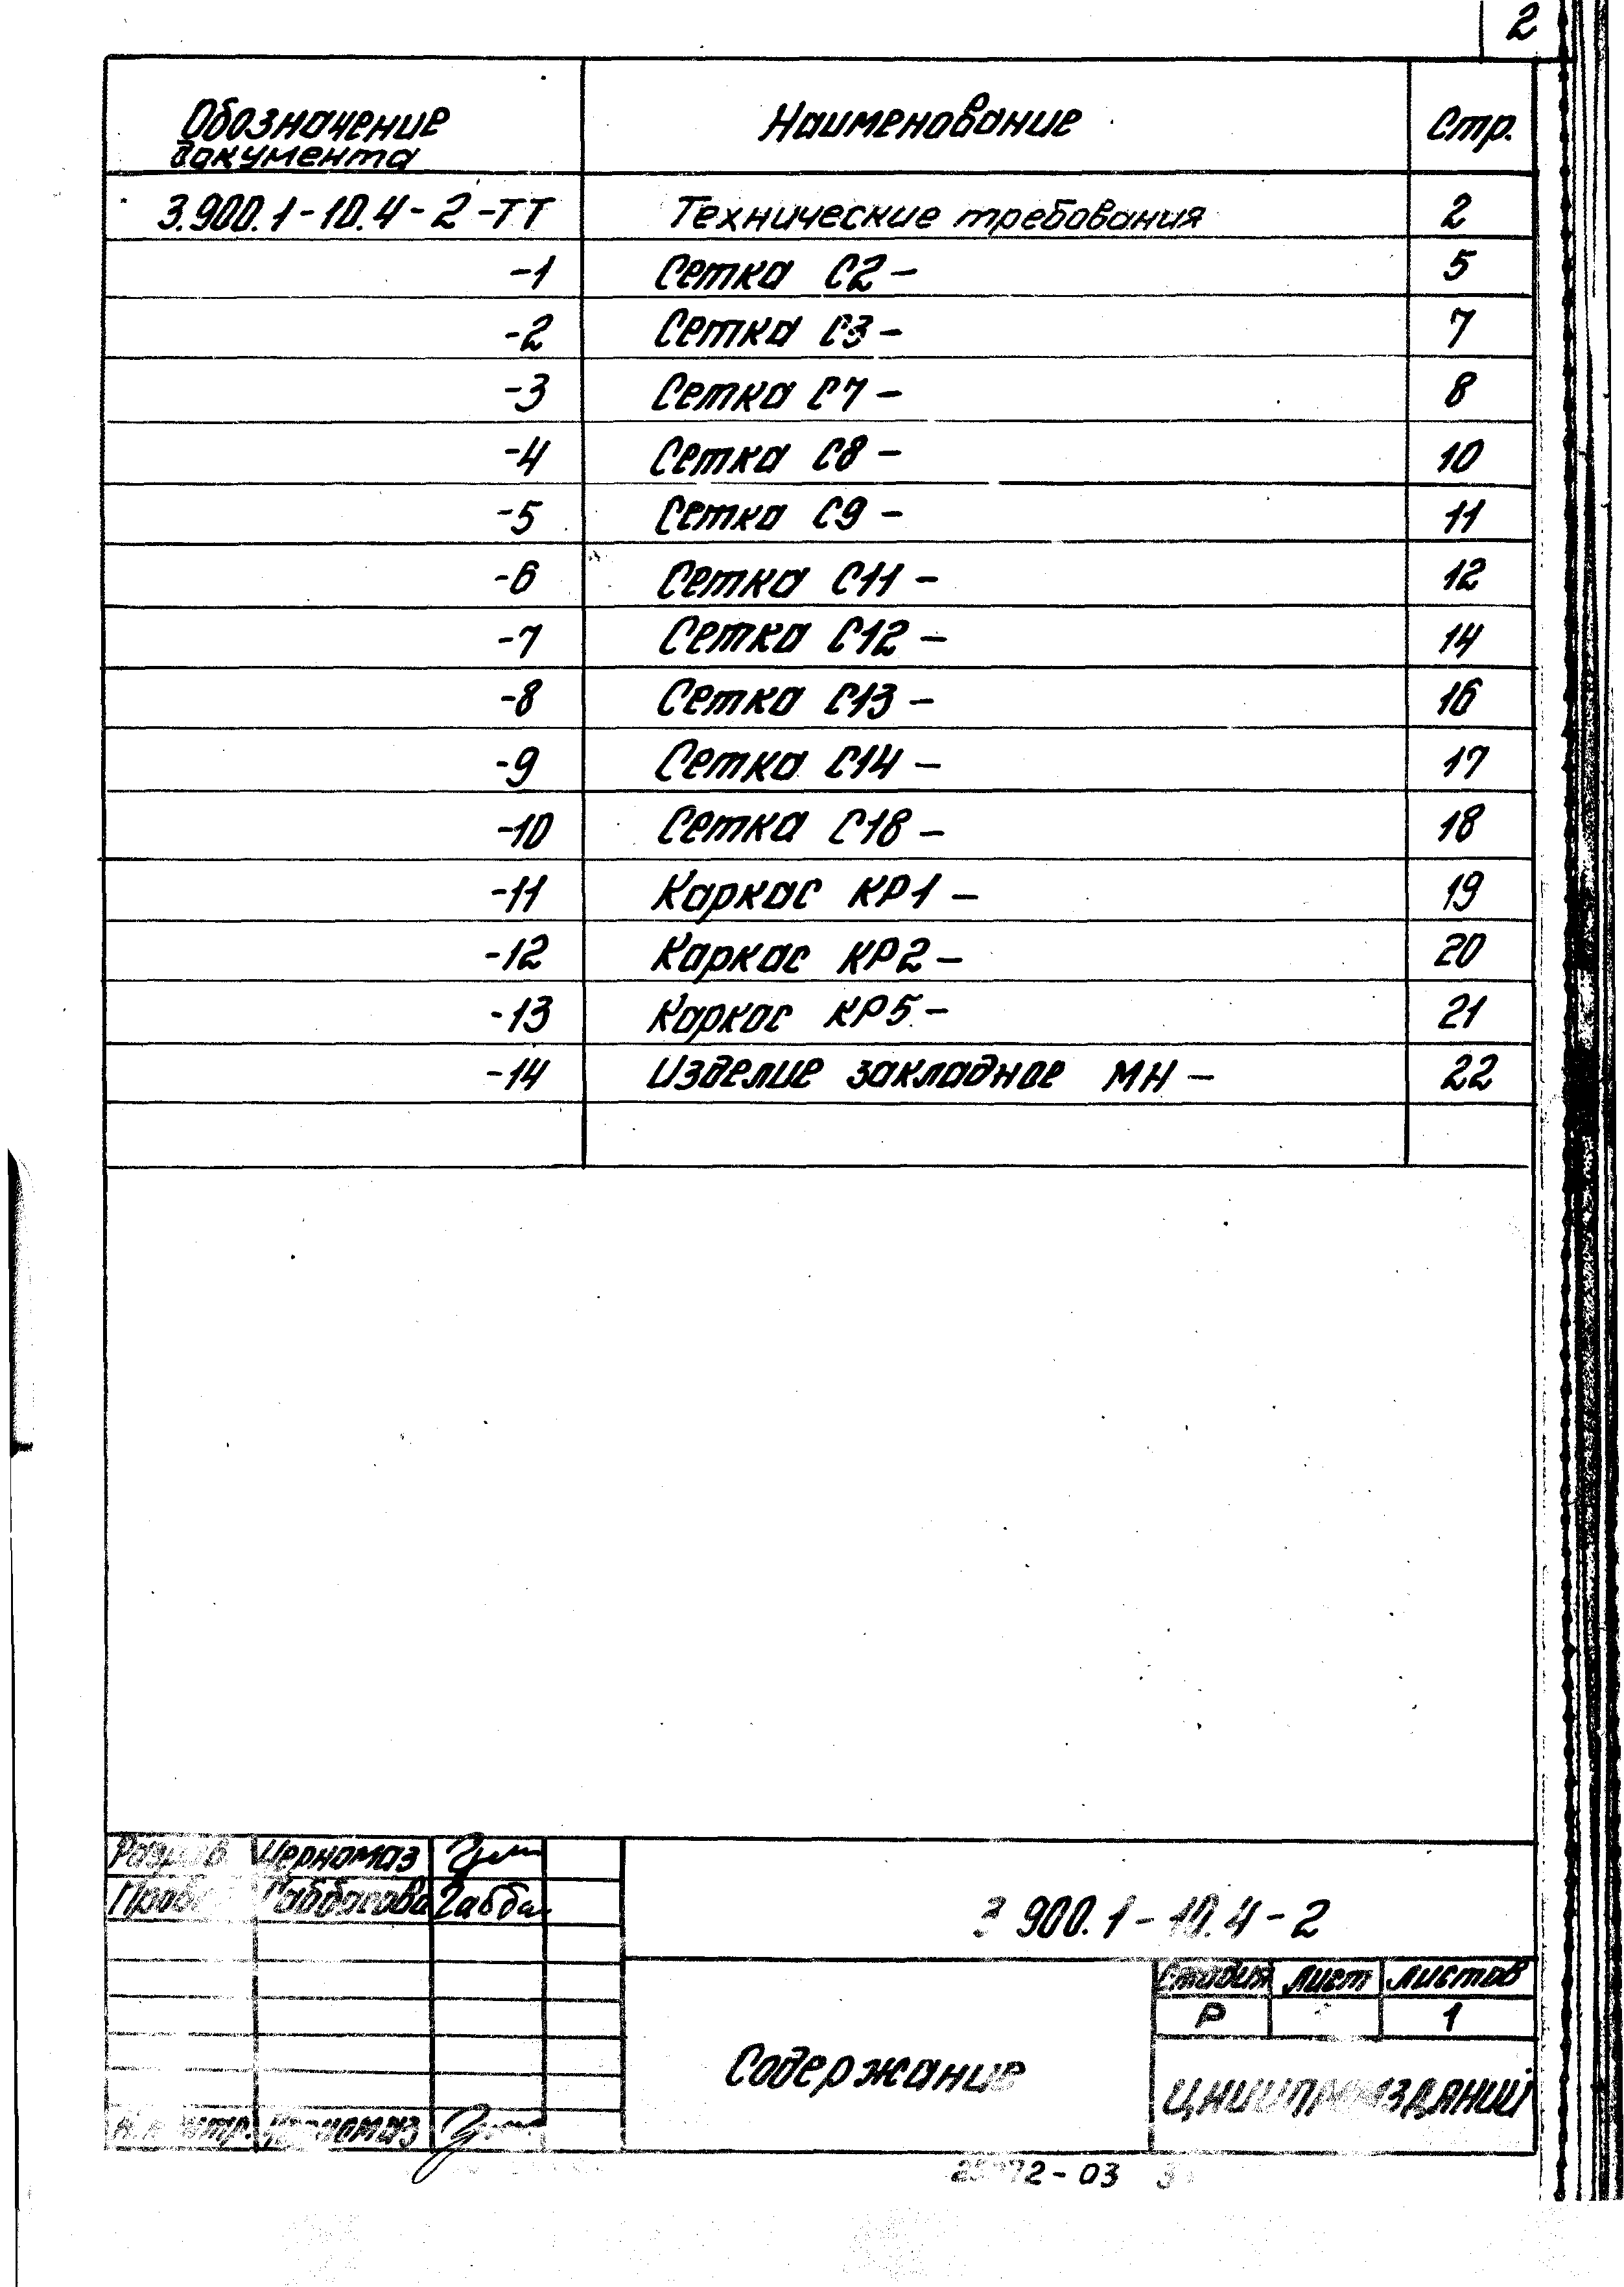 2
Обозначение документа Наименование Стр.
3.900.1-10.4-2-ТТ Технические требования 2
-1 Сетка С2- 5
-2 Сетка С3- 7
-3 Сетка С7- 8
-4 Сетка С8- 10
-5 Сетка С9- 11
-6 Сетка С11- 12
-7 Сетка С12- 14
-8 Сетка С13- 16
-9 Сетка С14- 17
-10 Сетка С18- 18
-11 Каркас КР1- 19
-12 Каркас КР2- 20
-13 Каркас КР5- 21
-14 Изделие закладное МН- 22
Черномаз
Габбасова Габба
3 900.1-10.4-2
Стадия Лист Листов
Р 1
Содержание
ЦНИИПРОМЗДАНИЙ
Н.контр. Черномаз
-03 3